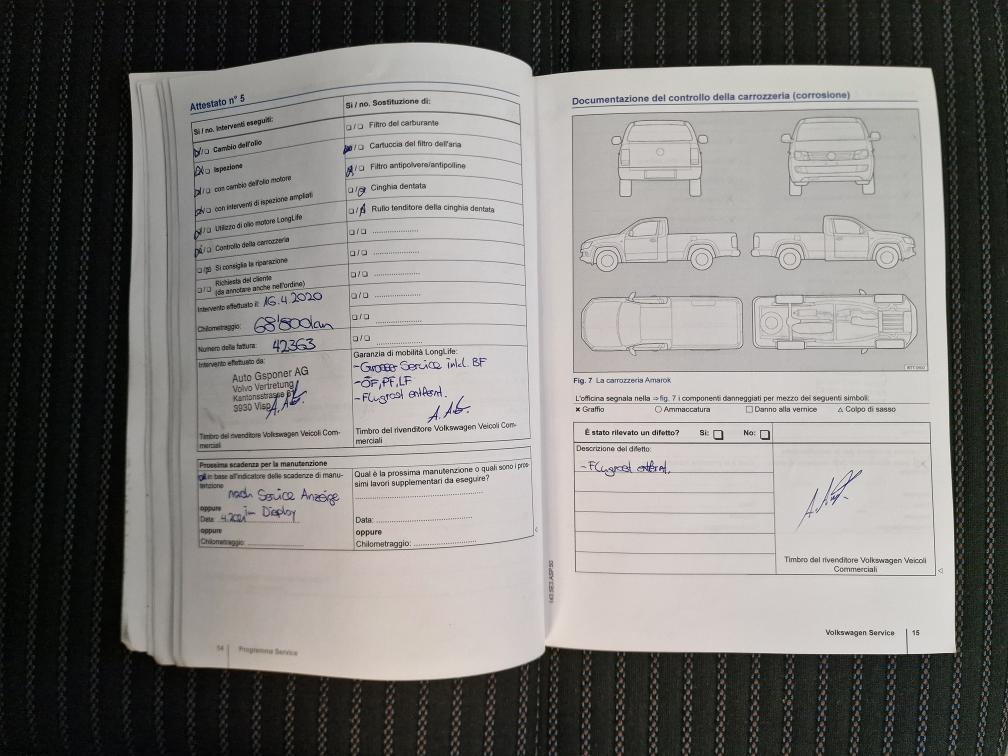 Attestato n° 5
Sì / no. Interventi eseguiti:
Cambio dell'olio
Ispezione
con cambio dell'olio motore
con interventi di ispezione ampliati
Utilizzo di olio motore LongLife
Controllo della carrozzeria
Si consiglia la riparazione
Richiesta del cliente
(da annotare anche nell'ordine)
Intervento effettuato il: 16.4.2020
Chilometraggio: 68'800km
Numero della fattura: 42363
Intervento effettuato da:
Auto Gsponer AG
Volvo Vertretung
Kantonsstrasse
3930 Visp
Timbro del rivenditore Volkswagen Veicoli Com-
merciali
Sì / no. Sostituzione di:
Filtro del carburante
Cartuccia del filtro dell'aria
Filtro antipolvere/antipolline
Cinghia dentata
Rullo tenditore della cinghia dentata
Garanzia di mobilità LongLife:
- Grosser Service inkl. BF
- ÖF, PF, LF
- Flugrost entfernt.
Timbro del rivenditore Volkswagen Veicoli Com-
merciali
Prossima scadenza per la manutenzione
in base all'indicatore delle scadenze di manu-
tenzione
nach Service Anzeige
oppure im Display
Data: 4.2021
oppure
Chilometraggio:
Qual è la prossima manutenzione o quali sono i pros-
simi lavori supplementari da eseguire?
Data:
oppure
Chilometraggio:
54 Programma Service
Documentazione del controllo della carrozzeria (corrosione)
Fig. 7 La carrozzeria Amarok
L'officina segnala nella ⇒ fig. 7 i componenti danneggiati per mezzo dei seguenti simboli:
× Graffio ○ Ammaccatura □ Danno alla vernice △ Colpo di sasso
È stato rilevato un difetto? Sì: □ No: □
Descrizione del difetto:
- Flugrost entfernt.
Timbro del rivenditore Volkswagen Veicoli
Commerciali
Volkswagen Service 15